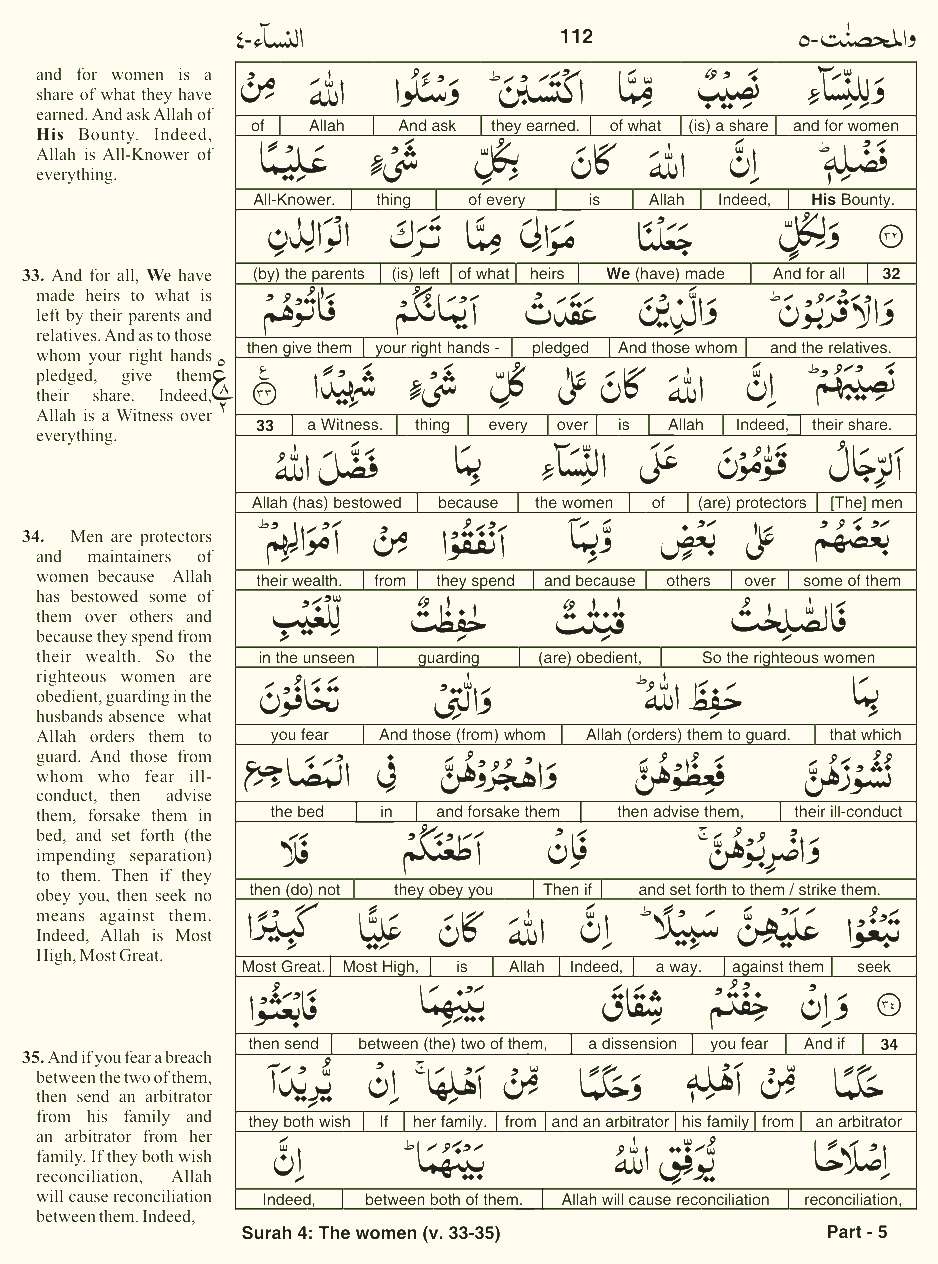 النسآء-٤
112
والمحصنٰت-٥
and for women is a
share of what they have
earned. And ask Allah of
His Bounty. Indeed,
Allah is All-Knower of
everything.
33. And for all, We have
made heirs to what is
left by their parents and
relatives. And as to those
whom your right hands
pledged, give them
their share. Indeed,
Allah is a Witness over
everything.
34. Men are protectors
and maintainers of
women because Allah
has bestowed some of
them over others and
because they spend from
their wealth. So the
righteous women are
obedient, guarding in the
husbands absence what
Allah orders them to
guard. And those from
whom who fear ill-
conduct, then advise
them, forsake them in
bed, and set forth (the
impending separation)
to them. Then if they
obey you, then seek no
means against them.
Indeed, Allah is Most
High, Most Great.
35. And if you fear a breach
between the two of them,
then send an arbitrator
from his family and
an arbitrator from her
family. If they both wish
reconciliation, Allah
will cause reconciliation
between them. Indeed,
وَلِلنِّسَآءِ نَصِيْبٌ مِّمَّا اكْتَسَبْنَ ؕ وَسْـَٔلُوا اللّٰهَ مِنْ
of Allah And ask they earned. of what (is) a share and for women
فَضْلِهٖ ؕ اِنَّ اللّٰهَ كَانَ بِكُلِّ شَيْءٍ عَلِيْمًا
All-Knower. thing of every is Allah Indeed, His Bounty.
٣٢ وَلِكُلٍّ جَعَلْنَا مَوَالِيَ مِمَّا تَرَكَ الْوَالِدٰنِ
(by) the parents (is) left of what heirs We (have) made And for all 32
وَالْاَقْرَبُوْنَ ؕ وَالَّذِيْنَ عَقَدَتْ اَيْمَانُكُمْ فَاٰتُوْهُمْ
then give them your right hands - pledged And those whom and the relatives.
نَصِيْبَهُمْ ؕ اِنَّ اللّٰهَ كَانَ عَلٰى كُلِّ شَيْءٍ شَهِيْدًا ع ٣٣
٥ ع ٨ ٢
33 a Witness. thing every over is Allah Indeed, their share.
اَلرِّجَالُ قَوّٰمُوْنَ عَلَى النِّسَآءِ بِمَا فَضَّلَ اللّٰهُ
Allah (has) bestowed because the women of (are) protectors [The] men
بَعْضَهُمْ عَلٰى بَعْضٍ وَّبِمَآ اَنْفَقُوْا مِنْ اَمْوَالِهِمْ ؕ
their wealth. from they spend and because others over some of them
فَالصّٰلِحٰتُ قٰنِتٰتٌ حٰفِظٰتٌ لِّلْغَيْبِ
in the unseen guarding (are) obedient, So the righteous women
بِمَا حَفِظَ اللّٰهُ ؕ وَالّٰتِيْ تَخَافُوْنَ
you fear And those (from) whom Allah (orders) them to guard. that which
نُشُوْزَهُنَّ فَعِظُوْهُنَّ وَاهْجُرُوْهُنَّ فِي الْمَضَاجِعِ
the bed in and forsake them then advise them, their ill-conduct
وَاضْرِبُوْهُنَّ ۚ فَاِنْ اَطَعْنَكُمْ فَلَا
then (do) not they obey you Then if and set forth to them / strike them.
تَبْغُوْا عَلَيْهِنَّ سَبِيْلًا ؕ اِنَّ اللّٰهَ كَانَ عَلِيًّا كَبِيْرًا
Most Great. Most High, is Allah Indeed, a way. against them seek
٣٤ وَاِنْ خِفْتُمْ شِقَاقَ بَيْنِهِمَا فَابْعَثُوْا
then send between (the) two of them, a dissension you fear And if 34
حَكَمًا مِّنْ اَهْلِهٖ وَحَكَمًا مِّنْ اَهْلِهَا ۚ اِنْ يُّرِيْدَآ
they both wish If her family. from and an arbitrator his family from an arbitrator
اِصْلَاحًا يُّوَفِّقِ اللّٰهُ بَيْنَهُمَا ؕ اِنَّ
Indeed, between both of them. Allah will cause reconciliation reconciliation,
Surah 4: The women (v. 33-35)
Part - 5